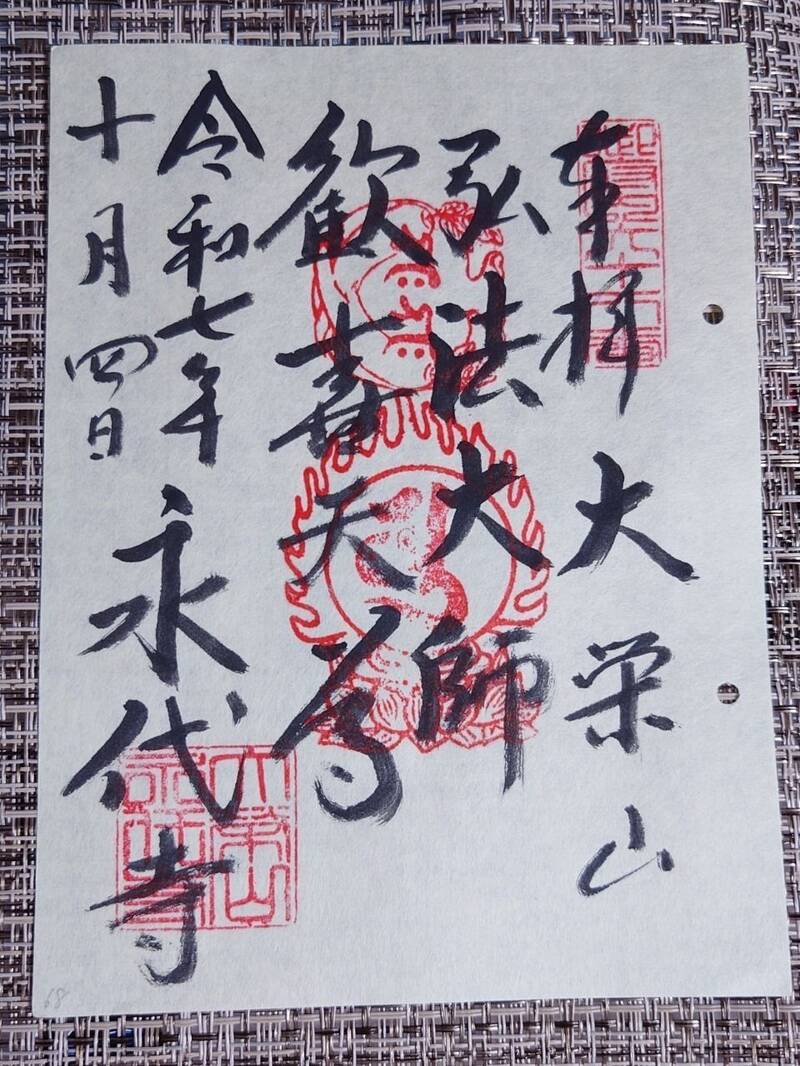 奉拝 大栄山
弘法大師
歓喜天尊
令和七年
十月四日
永代寺
大榮山
永代寺
68